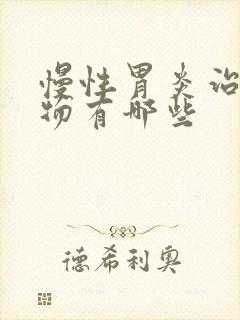 慢性胃炎治
物有哪些
德希利奥